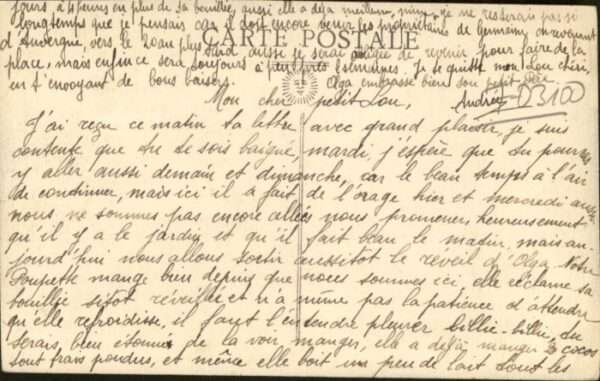 jours à 4 heures en plus de sa bouillie, aussi elle a déjà meilleure mine. je ne resterais pas si
longtemps que je pensais car il doit encore venir les propriétaires de Germany en revenant
d'Auvergne, vers le 20 au plus tard, aussi je serai obligée de revenir pour faire de la
place, mais enfin ce sera toujours à peu près 3 semaines. Je te quitte mon Lou chéri,
en t'envoyant de bons baisers.
Olga embrasse bien son petit Père
CARTE POSTALE
Andrée
03100
Mon cher petit Lou,
J'ai reçu ce matin ta lettre avec grand plaisir, je suis
contente que tu te sois baigné, mardi, j'espère que tu pourras
y aller aussi demain et dimanche, car le beau temps a l'air
de continuer, mais ici il a fait de l'orage hier et mercredi aussi
nous ne sommes pas encore allées nous promener, heureusement
qu'il y a le jardin et qu'il fait beau le matin, mais au-
jourd'hui nous allons sortir aussitôt le réveil d'Olga. Notre
Poupette mange bien depuis que nous sommes ici, elle réclame sa
bouillie sitôt réveillée et n'a même pas la patience d'attendre
qu'elle refroidisse, il faut l'entendre pleurer billie-billie, tu
serais bien étonné de la voir manger, elle a déjà mangé 3 cocos
sont frais pondus, et même elle boit un peu de lait tous les